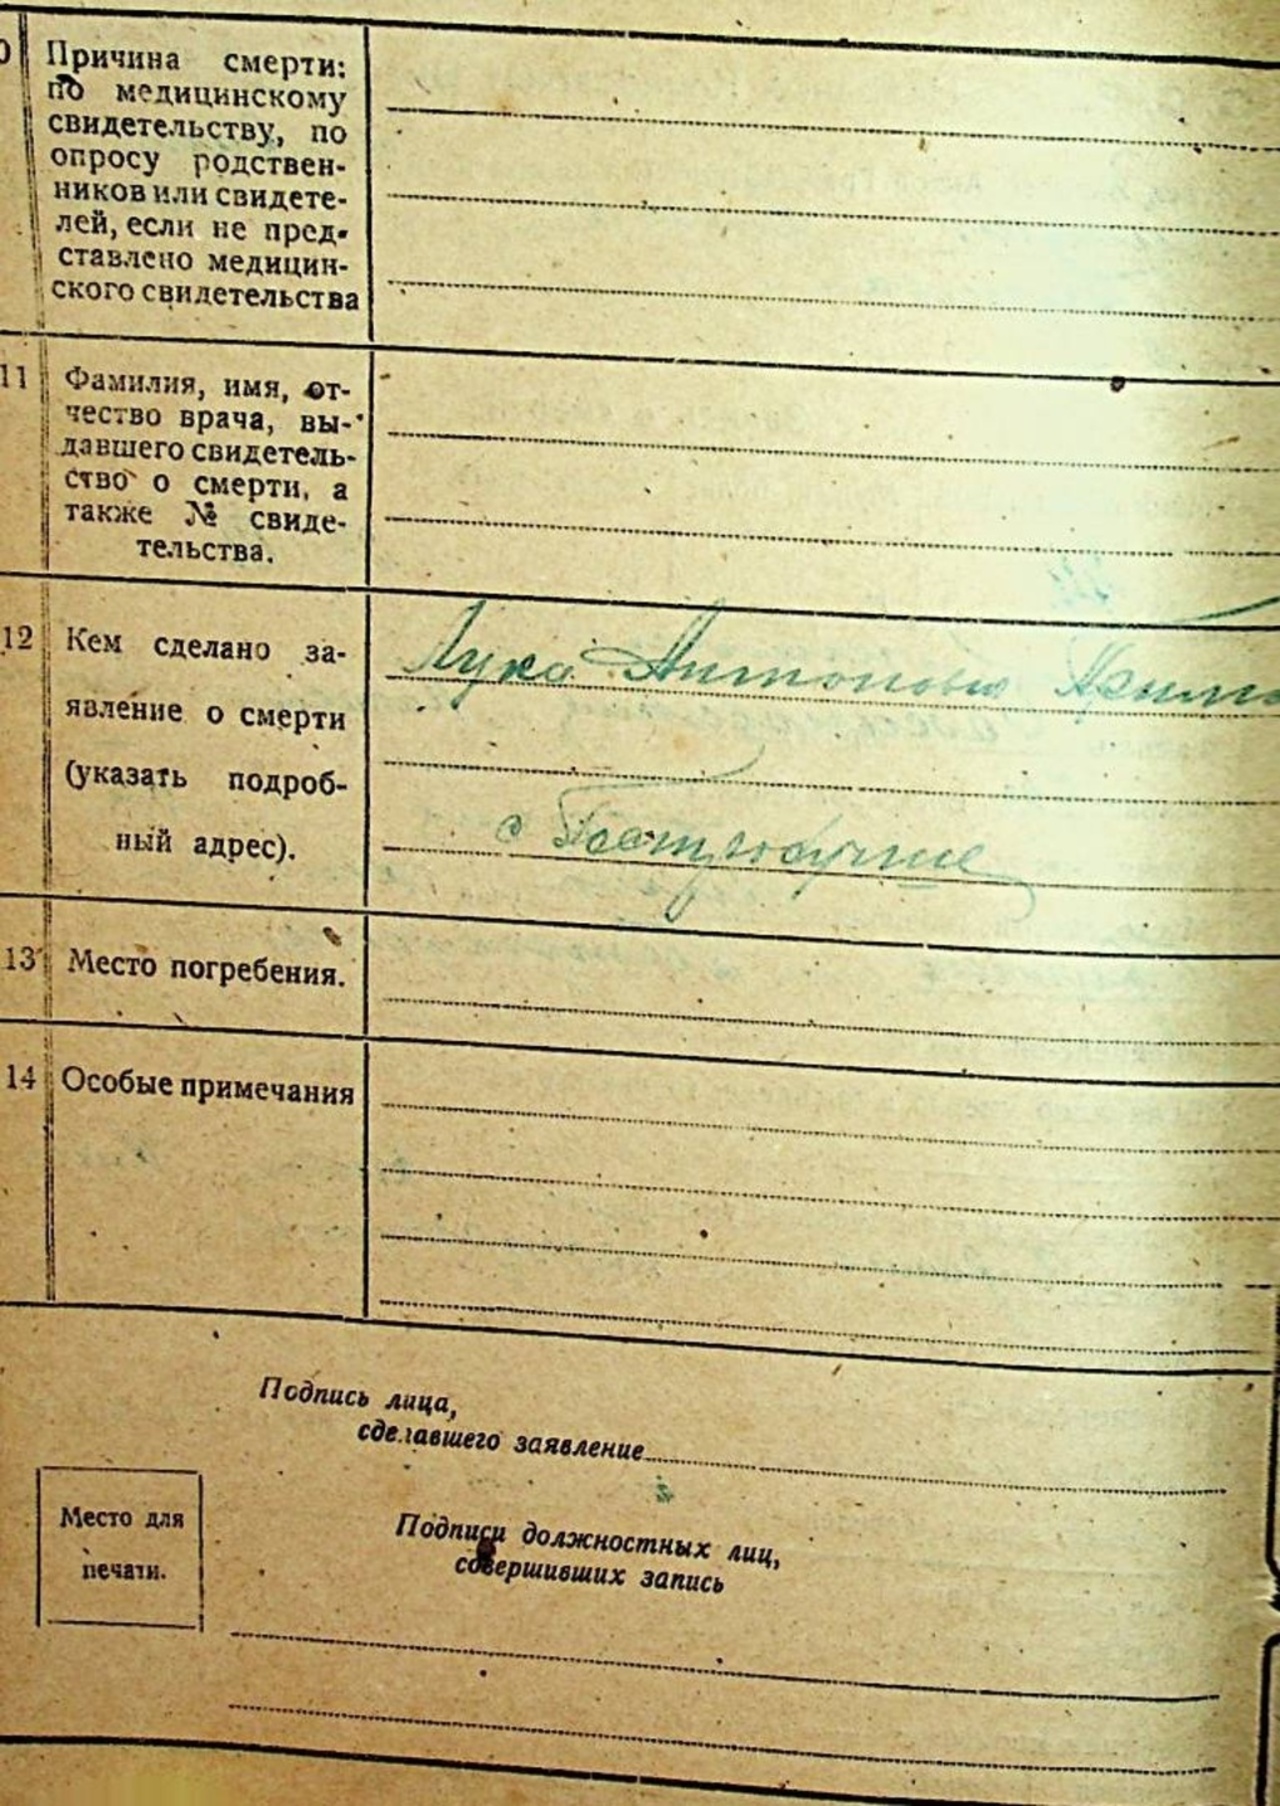 Причина смерти:
по медицинскому
свидетельству, по
опросу родствен-
ников или свидете-
лей, если не пред-
ставлено медицин-
ского свидетельства
11
Фамилия, имя, от-
чество врача, вы-
давшего свидетель-
ство о смерти, а
также № свиде-
тельства.
12
Кем сделано за-
явление о смерти
(указать подроб-
ный адрес).
Лука Антонович
с
13
Место погребения.
14
Особые примечания
Подпись лица,
сделавшего заявление
Место для
печати.
Подписи должностных лиц,
совершивших запись